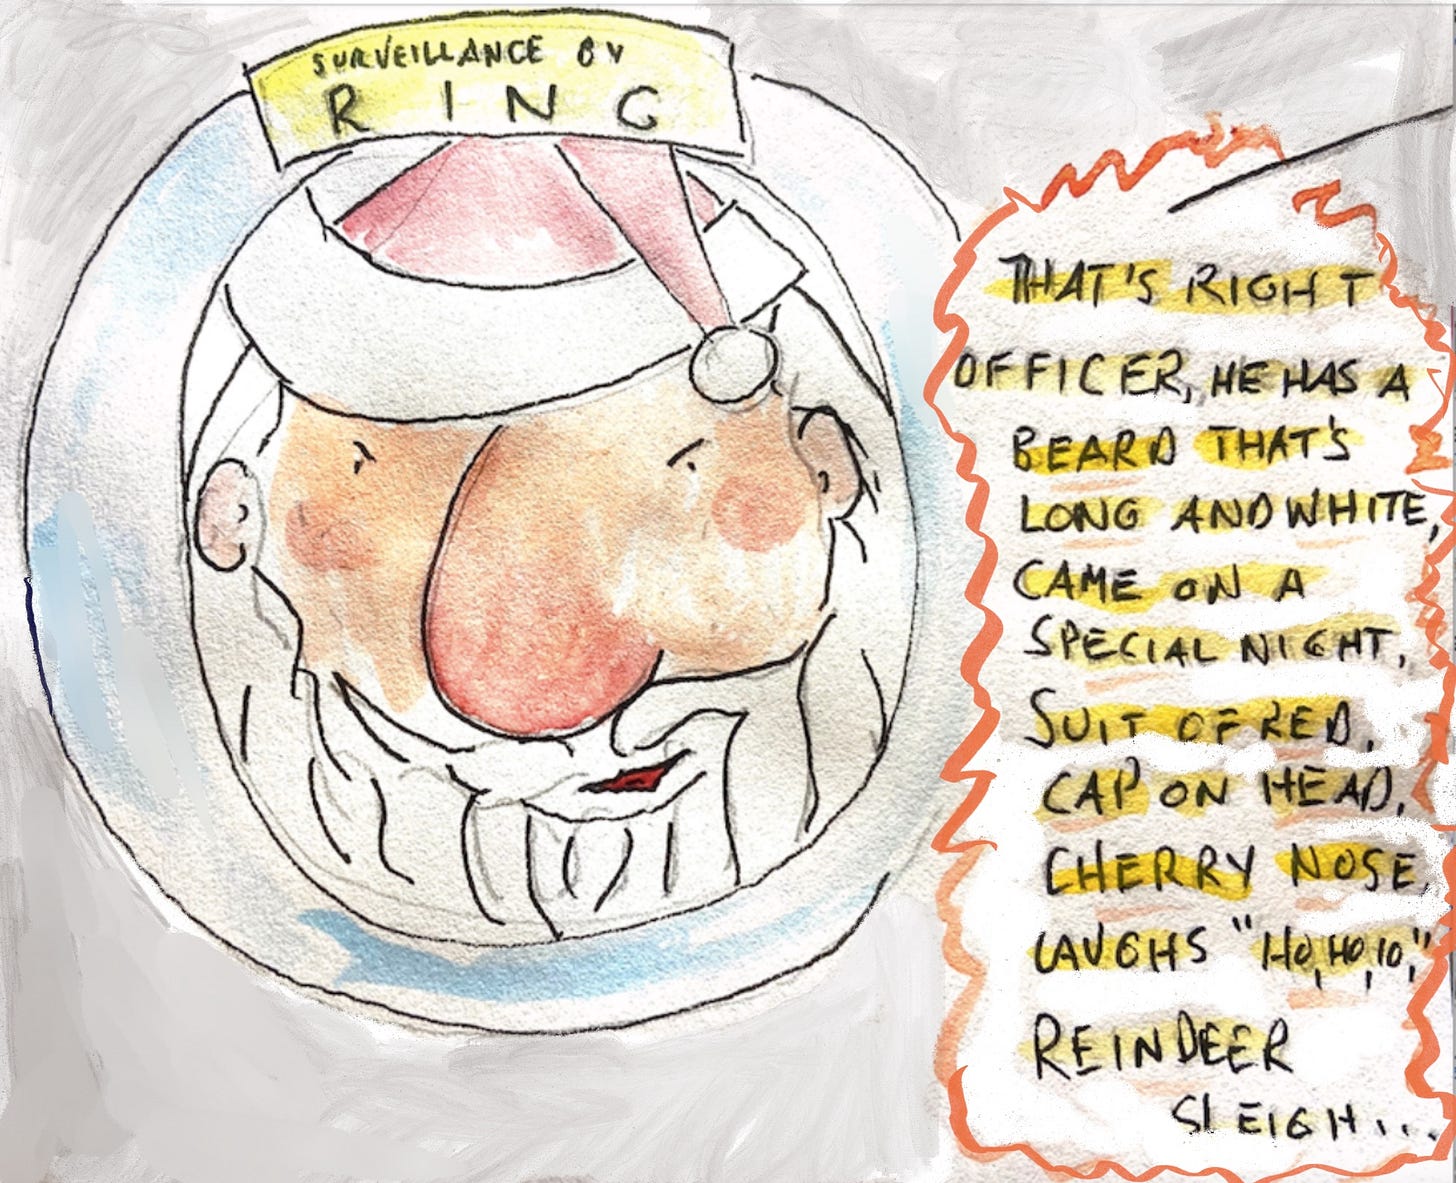 SURVEILLANCE BY
RING
THAT'S RIGHT
OFFICER, HE HAS A
BEARD THAT'S
LONG AND WHITE,
CAME ON A
SPECIAL NIGHT,
SUIT OF RED,
CAP ON HEAD,
CHERRY NOSE,
LAUGHS "HO, HO, HO,"
REINDEER
SLEIGH...